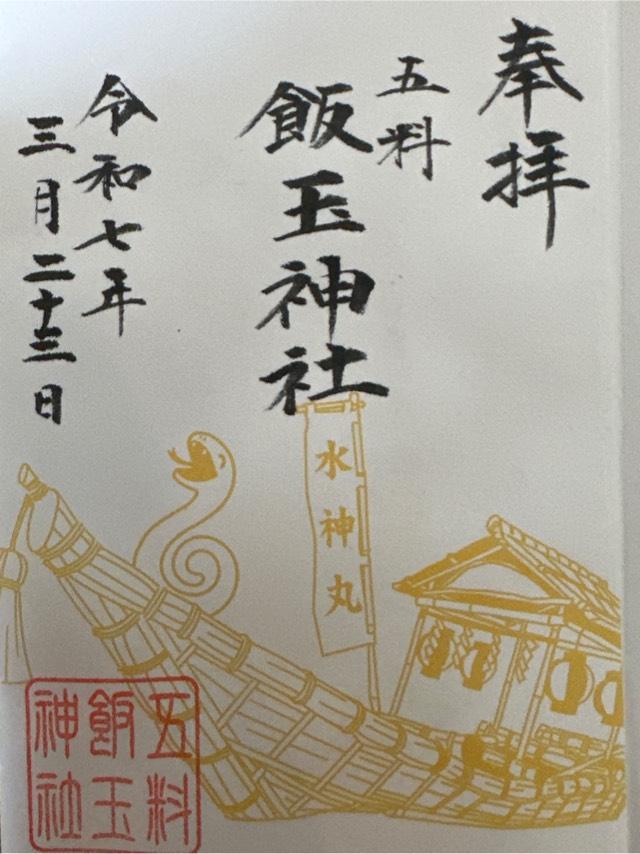 奉拝
五料
飯玉神社
令和七年
三月二十三日
水神丸
五料
飯玉
神社